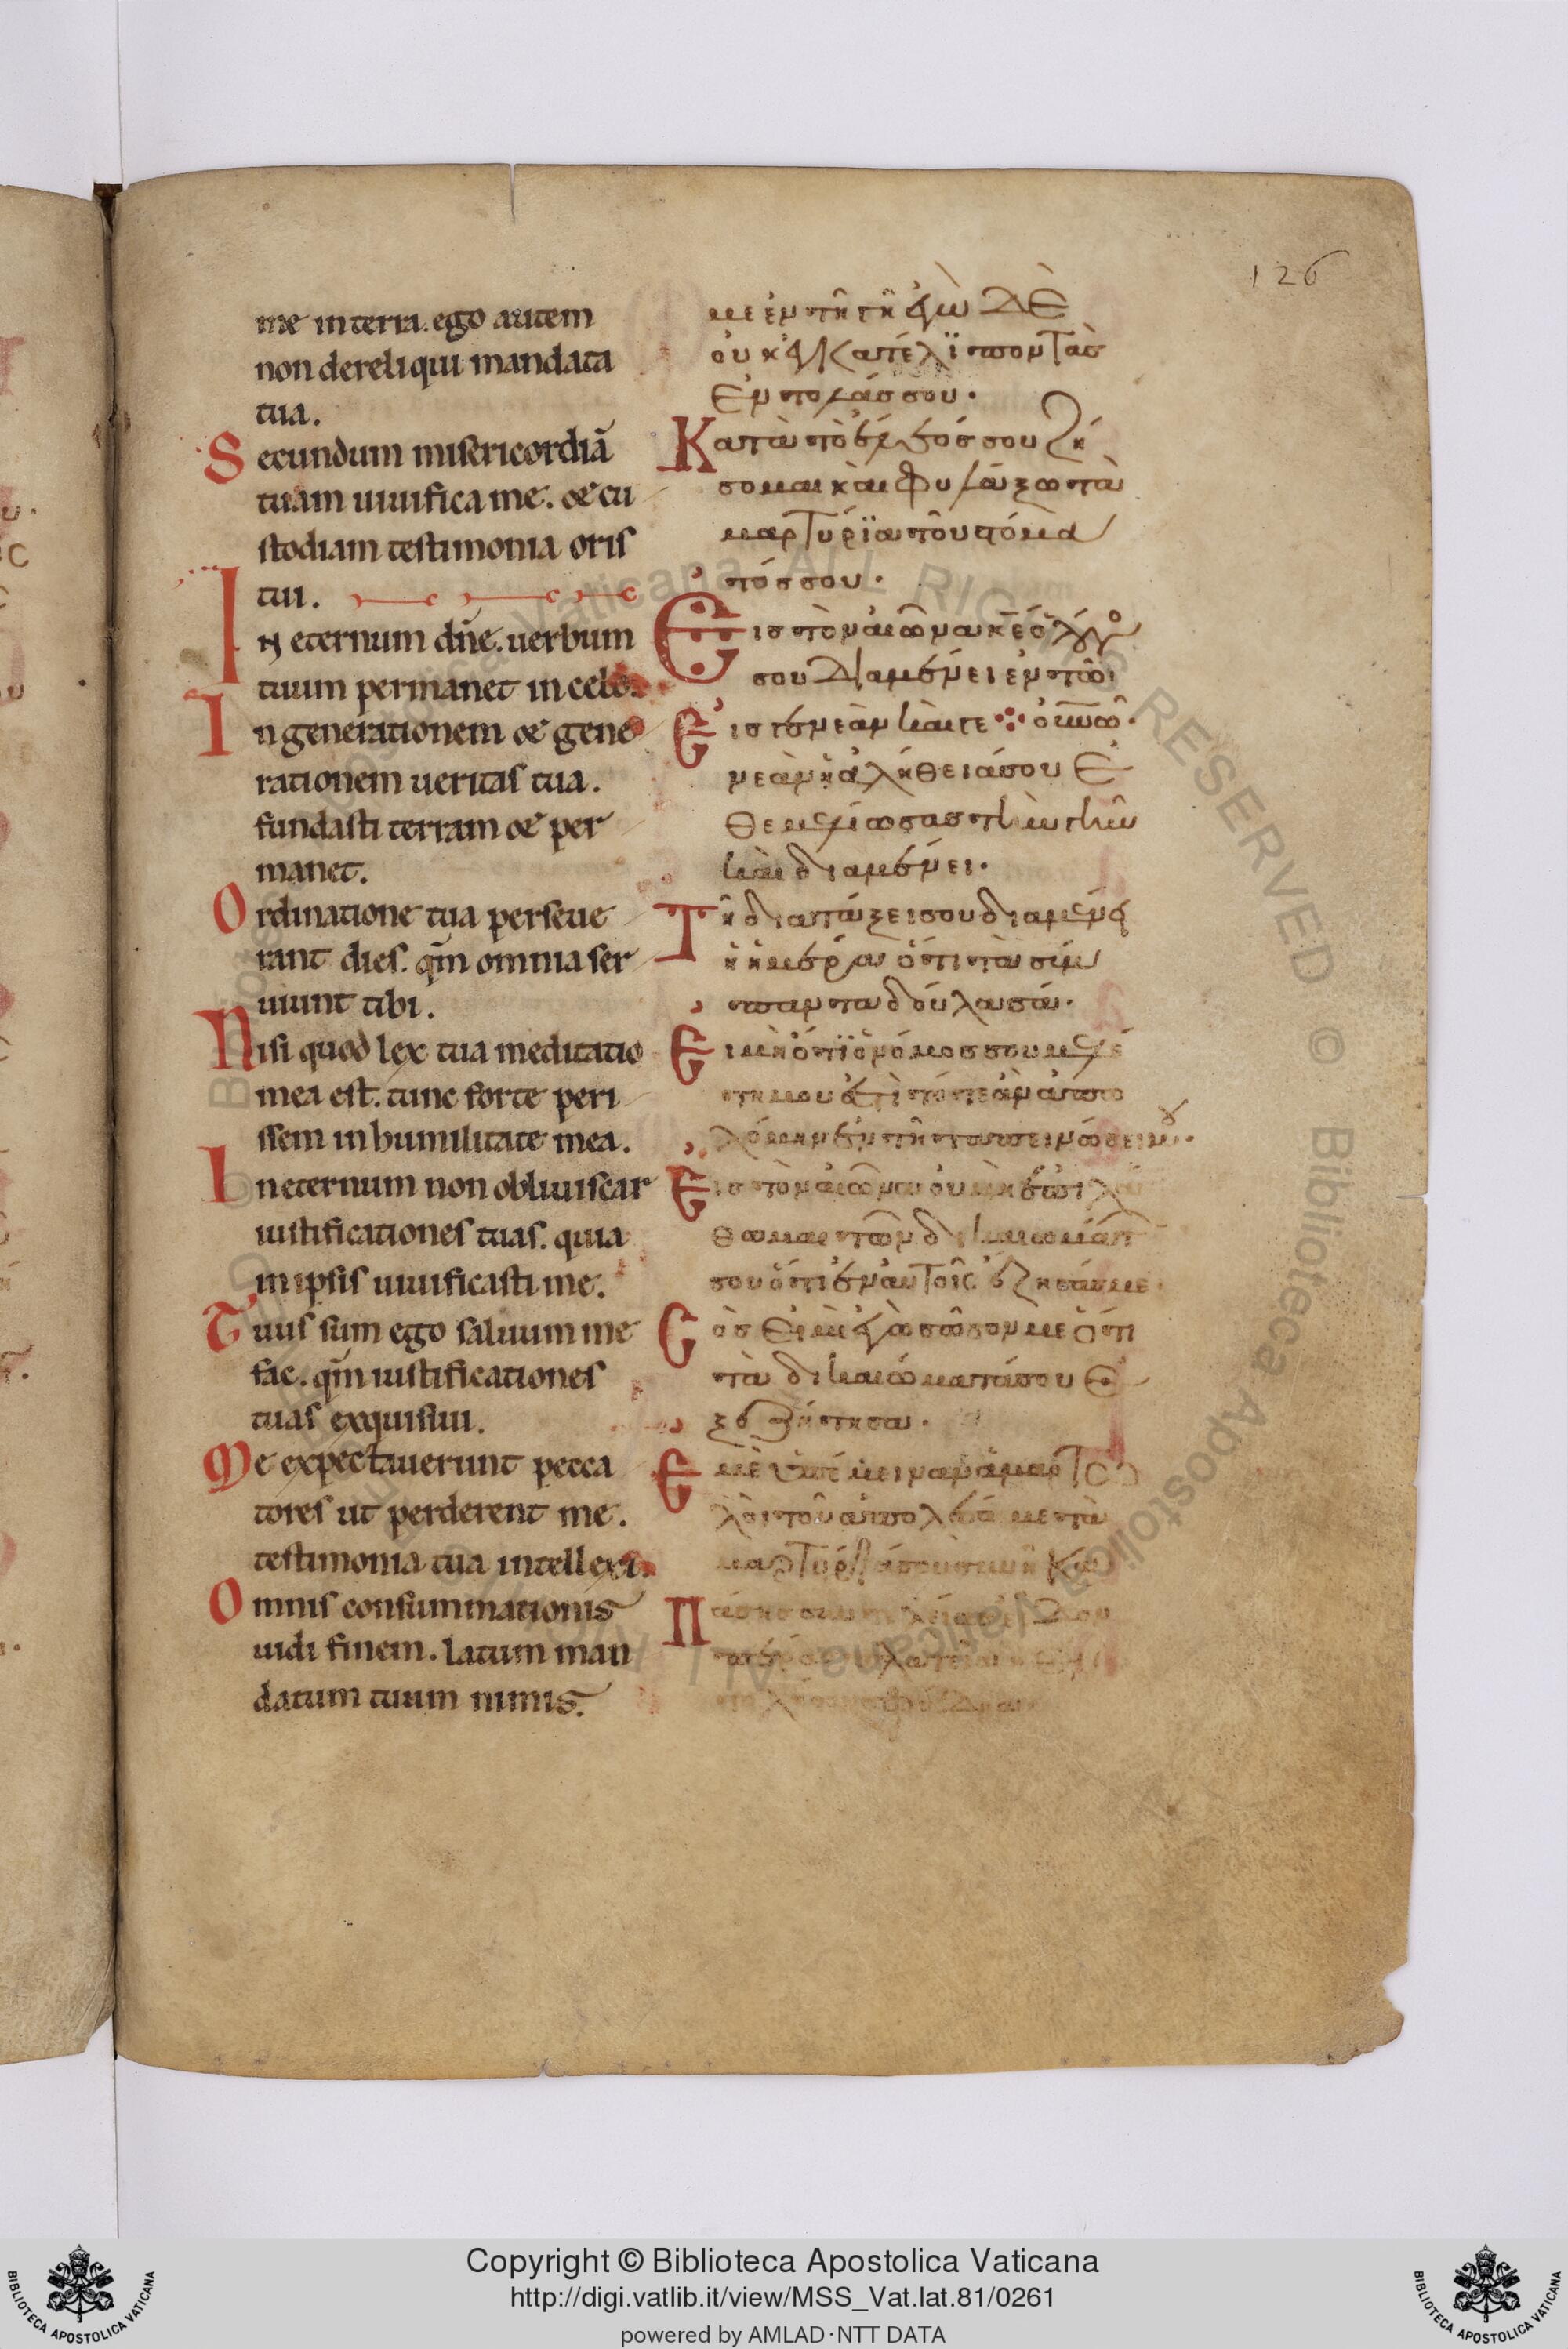 126
me in terra. ego autem
non dereliqui mandata
tua.
Secundum misericordiã
tuam uiuifica me. & cu
stodiam testimonia oris
tui.
In eternum dñe. uerbum
tuum permanet in celo.
In generationem & gene
rationem ueritas tua.
fundasti terram & per
manet.
Ordinatione tua perseue
rant dies. qm̃ omnia ser
uiunt tibi.
Nisi quod lex tua meditatio
mea est. tunc forte peri
ssem in humilitate mea.
In eternum non obliuiscar
iustificationes tuas. quia
in ipsis uiuificasti me.
Tuus sum ego saluum me
fac. qm̃ iustificationes
tuas exquisiui.
Me expectauerunt pecca
tores ut perderent me.
testimonia tua intellexi.
Omnis consummationis
uidi finem. latum man
datum tuum nimis.
με ἐν τῆ γῆ ἐγὼ ΔΕ
οὐκ ἐγκατέλϊπον τὰσ
ἐντολάσ σου.
Κατὰ τὸ ἔλεόσ σου ζῆ
σομαι κὰι φυλάξω τὰ
μαρτύρϊα τοῦ στόμα
τόσ σου.
Εισ τὸν ἀιῶνα κ̅ε ὁ λόγοσ
σου Διαμένει ἐν τῶ
Εισ γενεὰν κὰι γε
νεὰν ἡ ἀλήθειά σου Ἐ
θεμελίωσασ τὴν γῆν
κὰι διαμένει.
Τῆ διατάξει σου διαμένει
ἡ ἡμέρα ὅτι τὰ σύμ
παντα δοῦλα σά.
Ει μὴ ὅτι ὁ νόμοσ σου μελέ
τη μου ἐστὶ τότε ἀν ἀπω
λόμην ἐν τῆ ταπεινώσει μου.
Εισ τὸν ἀιῶνα οὐ μὴ ἐπιλά
θωμαι τῶν δικαιωμάτ
σου ὅτι ἐν ἀυτοῖς ἔζησάσ με.
Cόσ ἐιμι ἐγὼ σῶσον με ὅτι
τὰ δικαιώματά σου ἐ
ξεζήτησα.
Εμὲ ὑπέμειναν ἁμαρτω
λὸι τοῦ ἀπολέσαι με τὰ
μαρτύρϊά σου συνῆκα
Π